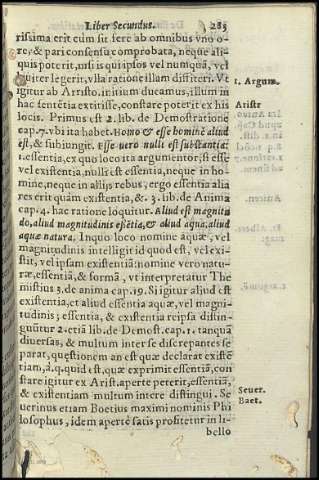 Liber Secundus. 283
rissima erit cum sit fere ab omnibus vno o-
re, & pari consensu comprobata, neque ali-
quis poterit, nisi is qui ipsos vel nunquã, vel
leuiter legerit, vlla ratione illam diffiteri. Vt
igitur ab Aristo. initium ducamus, illum in
hac sentẽtia extitisse, constare poterit ex his
locis. Primus est 2. lib. de Demostratione
cap. 7. vbi ita habet. Homo & esse hominẽ aliud
est, & subiungit. Esse vero nulli est substantia:
i. essentia, ex quo loco ita argumentor, si esse
vel existentia, nulli est essentia, neque in ho-
mine, neque in allijs rebus, ergo essentia alia
res erit quàm existentia, &. 3. lib. de Anima
cap. 4. hac ratione loquitur. Aliud est magnitu
do, aliud magnitudinis essẽtia, & aliud aqua, aliud
aquæ natura. In quo loco nomine aquæ, vel
magnitudinis intelligit id quod est, vel exi-
stit, vel ipsam existentiã: nomine vero natu-
ræ, essentiã, & formã, vt interpretatur The
mistius 3. de anima cap. 19. Si igitur aliud est
existentia, et aliud essentia aquæ, vel mag-
nitudinis; essentia, & existentia reipsa distin-
guũtur 2. etiã lib. de Demost. cap. 1. tanquã
diuersas, & multum inter se discrepantes se
parat, quęstionem an est quæ declarat existẽ
tiam, à. q. quid est, quæ exprimit essentiã, con
stare igitur ex Arist. aperte poterit, essentiã,
& existentiam multum intere distingui. Se
uerinus etiam Boetius maximi nominis Phi
losophus, idem apertè satis profitetur in li-
bello
1. Argum.
Aristr
Seuer.
Baet.